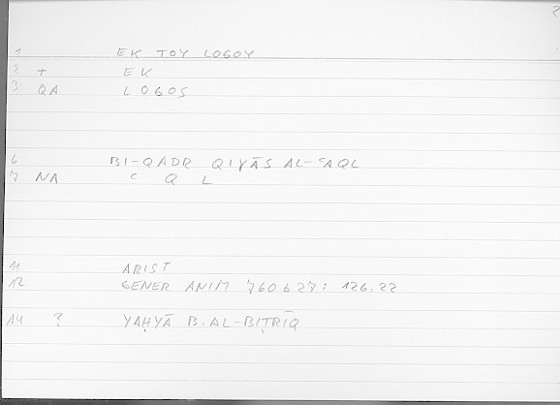 2
1 EK TOY LOGOY
2 + EK
3 QA LOGOS
6 BI-QADR QIYĀS AL-ʿAQL
7 NA ʿ Q L
11 ARIST
12 GENER ANIM 760b27: 126.22
14 ? YAḤYĀ B. AL-BIṬRĪQ